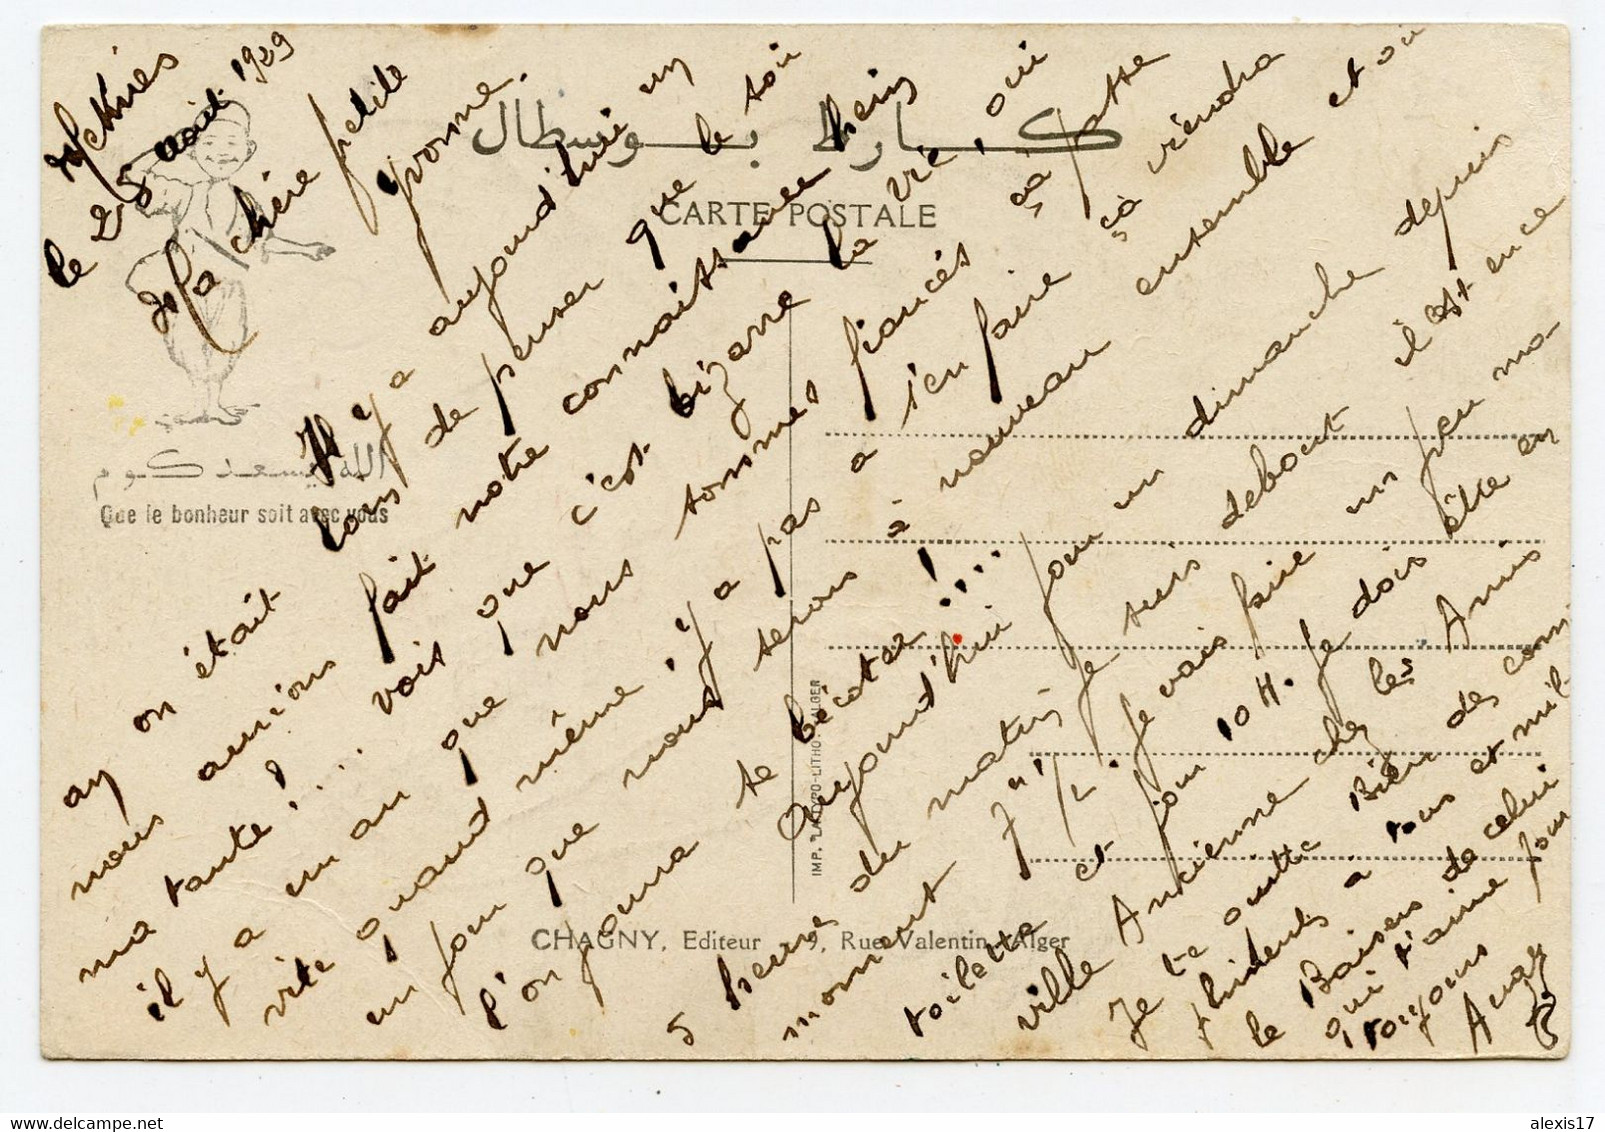 Meknès
le 25 août 1929
Ma chère petite
Yvonne.
Il y a aujourd'hui un
an on était loin de penser que le soir
nous aurions fait notre connaissance hein
ma tante ! .... vois que c'est bizarre la vie, oui
il y a un an que nous sommes fiancés ça passe
vite quand même il y a pas à s'en faire ça viendra
un jour que nous serons à nouveau ensemble et où
l'on pourra se bécoter ! ....
Aujourd'hui pour un dimanche depuis
5 heures du matin je suis debout il est en ce
moment 7h 1/2. Je vais faire un peu ma
toilette et pour 10 H. Je dois être en
ville Ancienne chez les Amis
Je te quitte Bien des com
pliments à tous et mil
le Baisers de celui
qui t'aime pour
toujours
كارط بوسطال
CARTE POSTALE
الله يسعدكوم
Que le bonheur soit avec vous
IMP. TYPO-LITHO. ALGER
CHAGNY, Editeur 9, Rue Valentin, Alger
alexis17